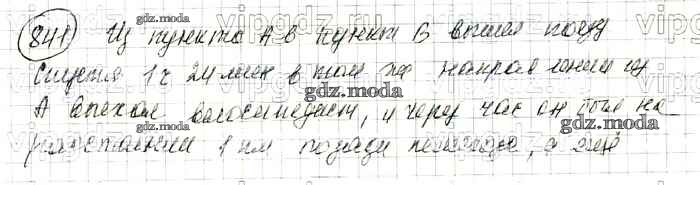 841) Из пункта А в пункт В вышел
Спустя 1 ч 24 мин в том же направлении из
А выехал велосипедист, и через час он был на
расстоянии 1 км позади пешехода, а ещё
gdz.moda
gdz.moda
gdz.moda
gdz.moda
gdz.moda